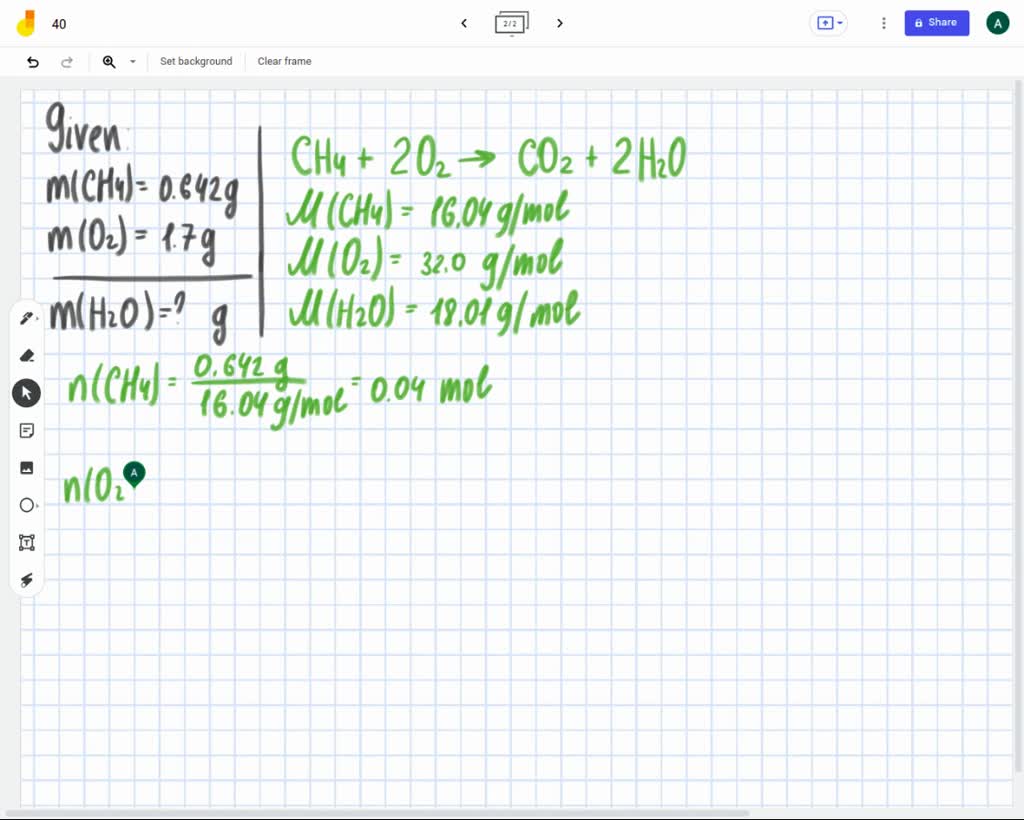 40
2/2
Share
A
Set background
Clear frame
Given:
m(CH4)= 0.642g
m(O2)= 1.7g
m(H2O)=? g
CH4 + 2O2 → CO2 + 2H2O
M(CH4)= 16.04 g/mol
M(O2)= 32.0 g/mol
M(H2O)= 18.01 g/mol
n(CH4)= 0.642 g / 16.04 g/mol = 0.04 mol
n(O2
A